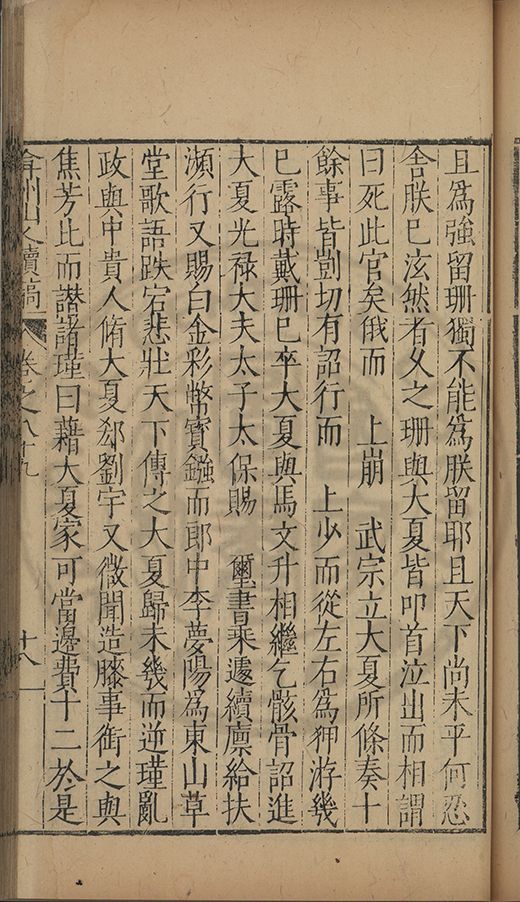 且為強留珊獨不能為朕留耶且天下尚未平何忍
舍朕已泫然者久之珊與大夏皆叩首泣出而相謂
曰死此官矣俄而　上崩　武宗立大夏所條奏十
餘事皆剴切有詔行而　上少而從左右為狎游幾
已露時戴珊已卒大夏與馬文升相繼乞骸骨詔進
大夏光祿大夫太子太保賜　璽書乘遽續廩給扶
瀕行又賜白金彩幣寶鏹而郎中李夢陽為東山草
堂歌語跌宕悲壯天下傳之大夏歸未幾而逆瑾亂
政與中貴人脩大夏郄劉宇又微聞造膝事銜之與
焦芳比而譖諸瑾曰藉大夏家可當邊費十二於是
弇州山人續稿　卷之八十九　十八